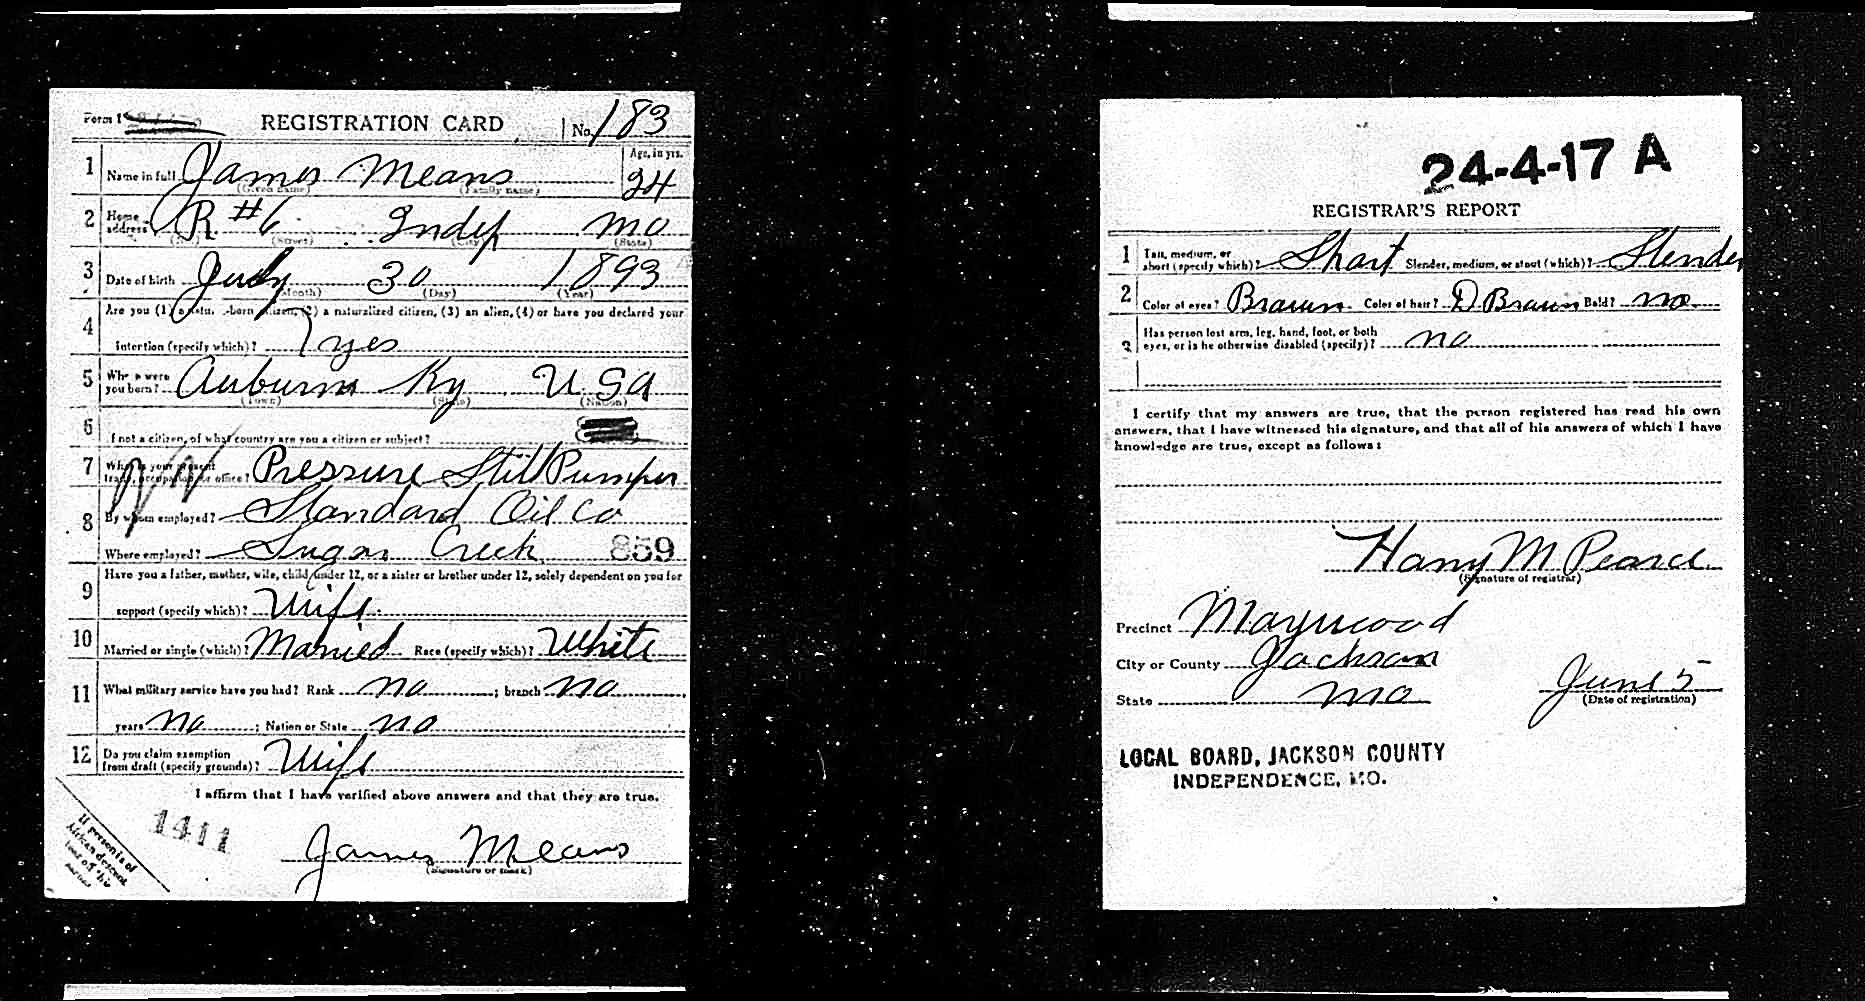 Form 1
REGISTRATION CARD No. 183
1 Name in full James Means Age, in yrs. 24
(Given name) (Family name)
2 Home address R. #6 Indep Mo
(No.) (Street) (City) (State)
3 Date of birth July 30 1893
(Month) (Day) (Year)
4 Are you (1) a natu -born citizen, (2) a naturalized citizen, (3) an alien, (4) or have you declared your
intention (specify which)? yes
5 Where were you born? Auburn Ky U S A
(Town) (State) (Nation)
6 I not a citizen, of what country are you a citizen or subject?
7 What is your present trade, occupation or office? Pressure Still Pumper
8 By whom employed? Standard Oil Co
Where employed? Sugar Creek 859
9 Have you a father, mother, wife, child under 12, or a sister or brother under 12, solely dependent on you for
support (specify which)? Wife
10 Married or single (which)? Married Race (specify which)? White
11 What military service have you had? Rank no ; branch no
years no ; Nation or State no
12 Do you claim exemption from draft (specify grounds)? Wife
I affirm that I have verified above answers and that they are true.
1411
James Means
(Signature or mark)
If person is of
African descent
tear off this
corner
24-4-17 A
REGISTRAR'S REPORT
1 Tall, medium, or short (specify which)? Short Slender, medium, or stout (which)? Slender
2 Color of eyes? Brown Color of hair? D Brown Bald? no
3 Has person lost arm, leg, hand, foot, or both
eyes, or is he otherwise disabled (specify)? no
I certify that my answers are true, that the person registered has read his own
answers, that I have witnessed his signature, and that all of his answers of which I have
knowledge are true, except as follows:
Harry M Pearce
(Signature of registrar)
Precinct Maywood
City or County Jackson
State Mo June 5
(Date of registration)
LOCAL BOARD, JACKSON COUNTY
INDEPENDENCE, MO.